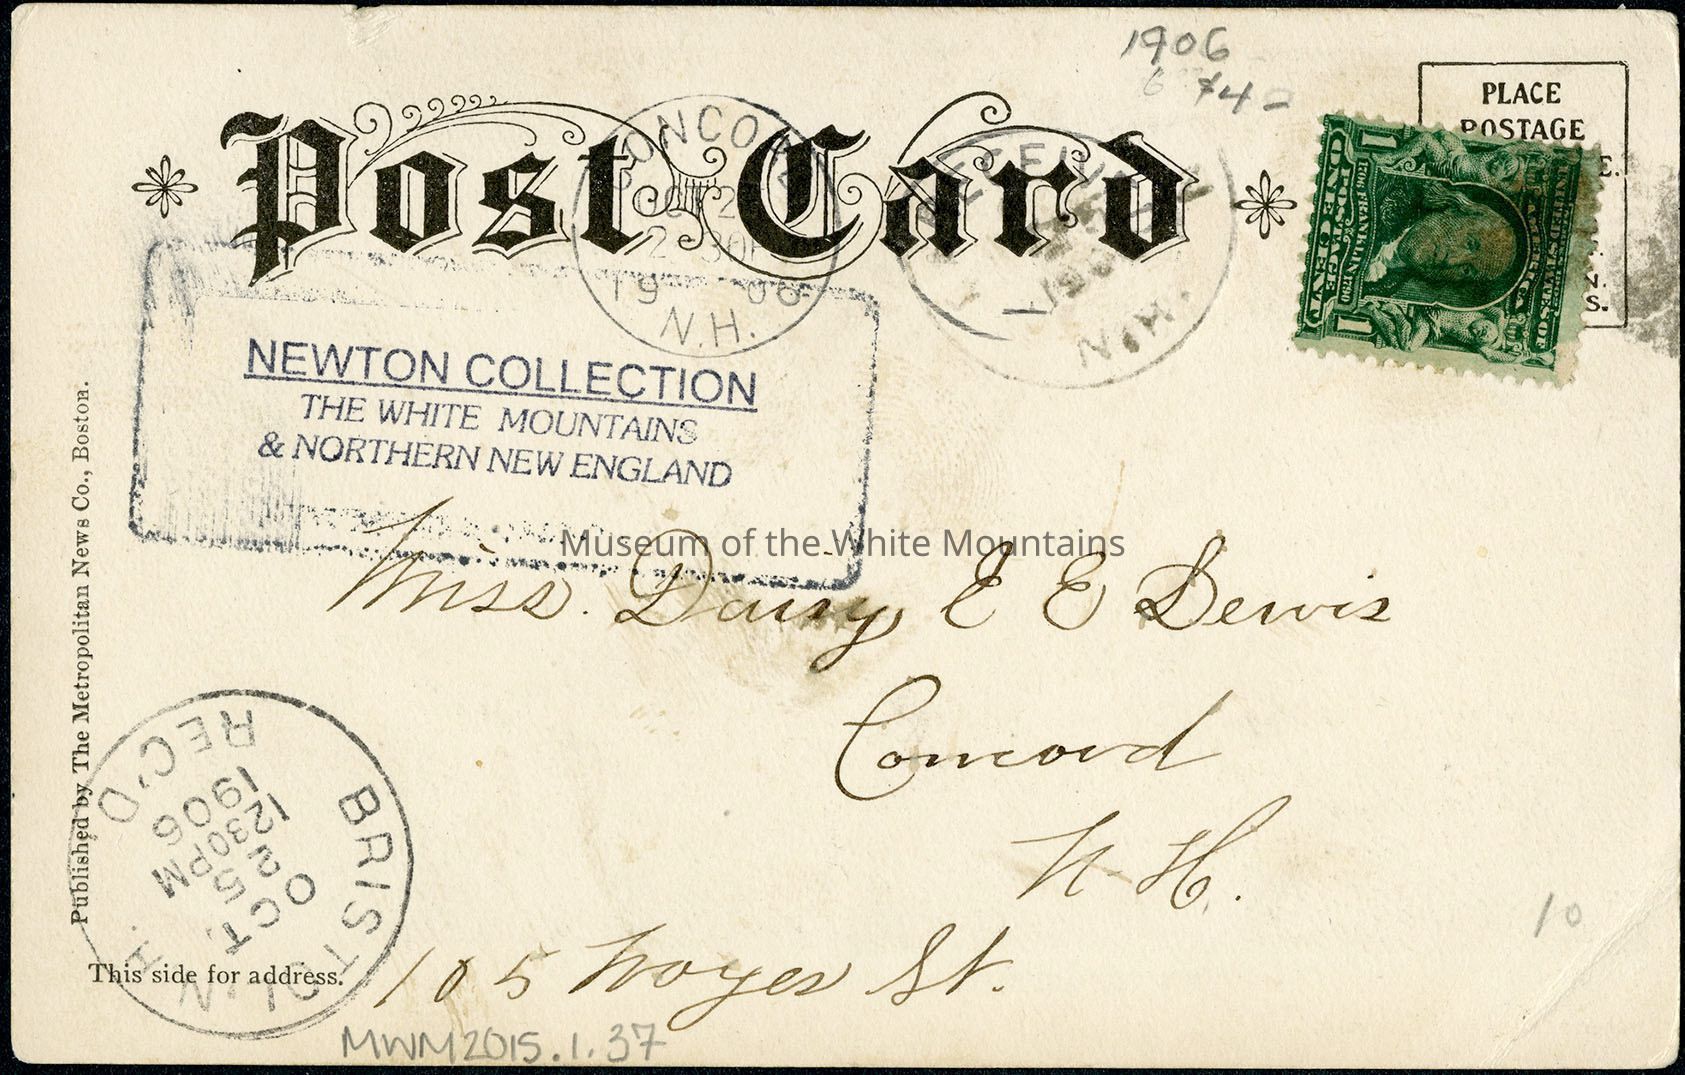 1906
PLACE
POSTAGE
Post Card
CONCORD
OCT 2
2 30P
1906
N.H.
RECEIVED
N.H.
1 1
POSTAGE
ONE CENT
NEWTON COLLECTION
THE WHITE MOUNTAINS
& NORTHERN NEW ENGLAND
Museum of the White Mountains
Miss. Daisy E E Lewis
Concord
N. H.
105 Noyes St.
10
Published by The Metropolitan News Co., Boston.
BRISTOL N.H.
OCT. 25
1230PM
1906
REC'D
This side for address.
MWM2015.1.37